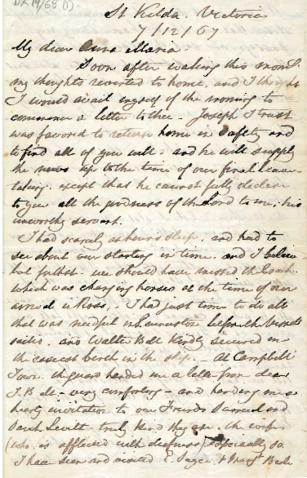 DX19/68 (1)
St Kilda. Victoria
7/12/67
My dear Anna Maria.
Soon after waking this morng.
my thoughts reverted to home, and I thought
I would avail myself of the morning to
commence a letter to thee. Joseph I trust
was favored to return home in safety, and
to find all of you well - and he will supply
the news up to the time of our final leave
taking. except that he cannot fully declare
to you all the goodness of the Lord to me; his
unworthy servant.
I had scarcely an hours sleep, and had to
see about our starting in time. and I believe
but for that we should have missed the Coach
which was changing horses at the time of our
arrival at Ross. I had just time to do all
that was needful in Launceston before the vessels
sailed. and Walter Bell kindly secured me
the easiest berth in the ship. - At Campbell
Town. the guard handed me a letter from dear
J.B. - very comforting - and handing me a
hearty invitation to our Friends
truly kind they are. the
(who is afflicted with deafness) especially so.
I have seen and visited